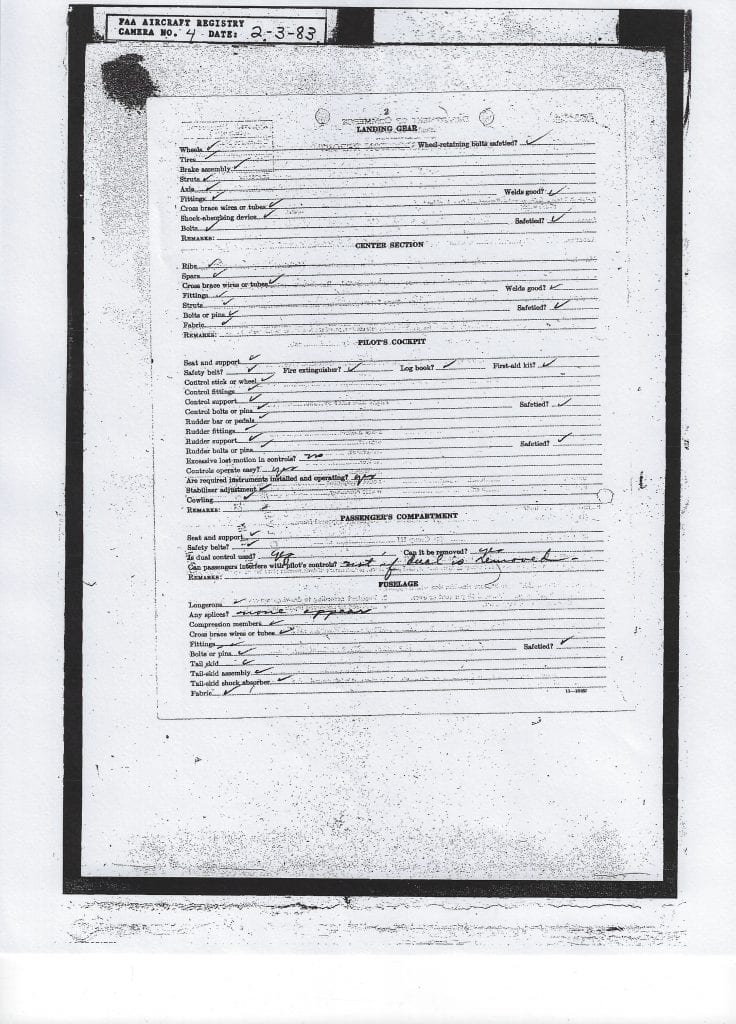 FAA AIRCRAFT REGISTRY
CAMERA NO. 4 DATE: 2-3-83
2
LANDING GEAR
Wheels ✓ Wheel-retaining bolts safetied? ✓
Tires ✓
Brake assembly ✓
Struts ✓
Axle ✓
Fittings ✓ Welds good? ✓
Cross brace wires or tubes ✓
Shock-absorbing device ✓
Bolts ✓ Safetied? ✓
REMARKS:
CENTER SECTION
Ribs ✓
Spars ✓
Cross brace wires or tubes ✓
Fittings ✓ Welds good? ✓
Struts ✓
Bolts or pins ✓ Safetied? ✓
Fabric ✓
REMARKS:
PILOT'S COCKPIT
Seat and support ✓
Safety belt? ✓ Fire extinguisher? ✓ Log book? ✓ First-aid kit? ✓
Control stick or wheel ✓
Control fittings ✓
Control support ✓
Control bolts or pins ✓ Safetied? ✓
Rudder bar or pedals ✓
Rudder fittings ✓
Rudder support ✓
Rudder bolts or pins ✓ Safetied? ✓
Excessive lost motion in controls? no
Controls operate easy? yes
Are required instruments installed and operating? yes
Stabilizer adjustment ✓
Cowling ✓
REMARKS:
PASSENGER'S COMPARTMENT
Seat and support ✓
Safety belts? ✓
Is dual control used? yes Can it be removed? yes
Can passengers interfere with pilot's controls? not if dual is removed -
REMARKS:
FUSELAGE
Longerons ✓
Any splices? none appear
Compression members ✓
Cross brace wires or tubes ✓
Fittings ✓
Bolts or pins ✓ Safetied? ✓
Tail skid ✓
Tail-skid assembly ✓
Tail-skid shock absorber ✓
Fabric ✓